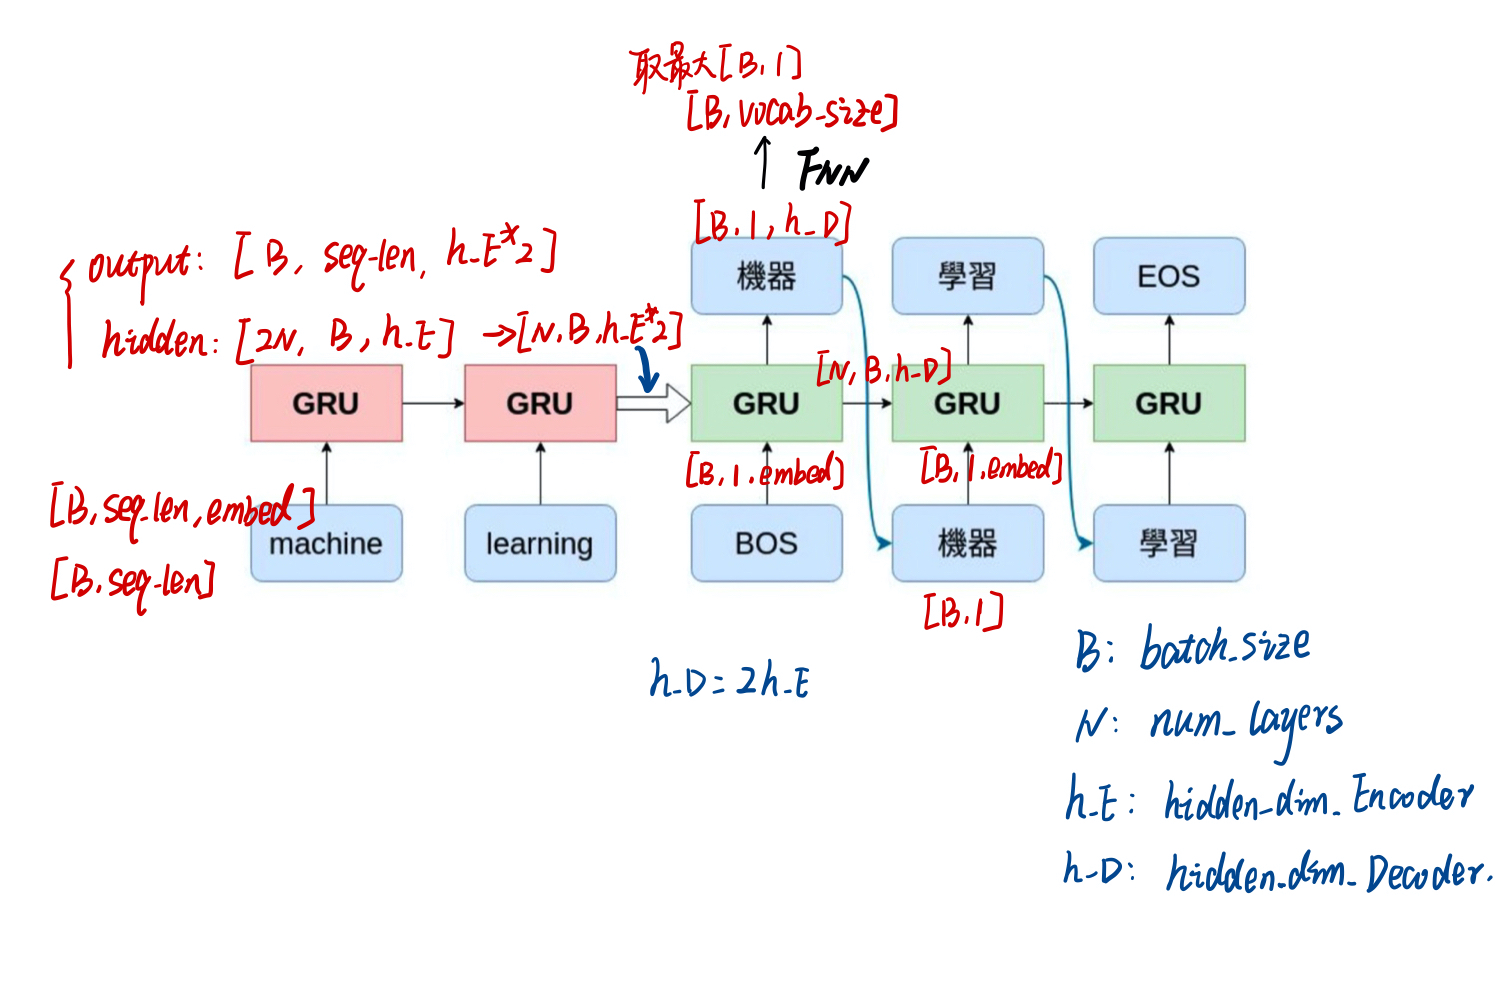 取最大[B,1]
[B, vocab_size]
FNN
[B,1,h_D]
output: [B, seq_len, h_E*2]
hidden: [2N, B, h_E] →[N,B,h_E*2]
機器
學習
EOS
[N,B,h_D]
GRU
GRU
GRU
GRU
GRU
[B,1,embed]
[B,1,embed]
[B,seq_len,embed]
machine
learning
BOS
機器
學習
[B,seq_len]
[B,1]
h_D=2h_E
B: batch_size
N: num_layers
h_E: hidden_dim_Encoder
h_D: hidden_dim_Decoder.